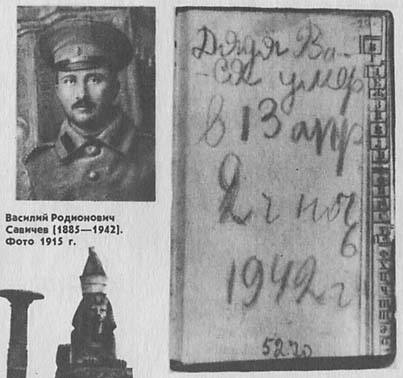 Василий Родионович
Савичев (1885—1942).
Фото 1915 г.
Дядя Ва-
-ся умер
в 13 апр
2 ч ноч
6
1942 г